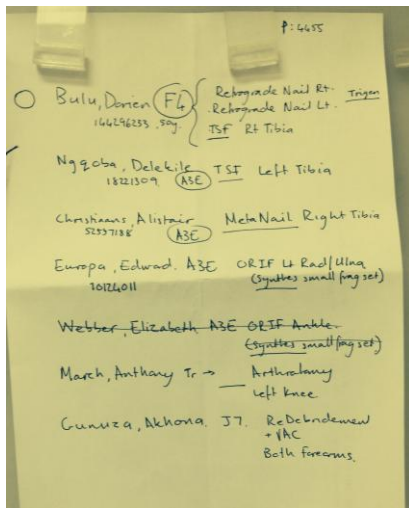 P: 4455
Bulu, Dorien F4 { Retrograde Nail Rt. Trigen
Retrograde Nail Lt.
144296253 50y. TSF Rt Tibia
Ngqoba, Delekile TSF Left Tibia
18221309 A3E
Christiaans, Alistair MetaNail Right Tibia
52597188 A3E
Europa, Edward. A3E ORIF Lt Rad/Ulna
20124011 (Synthes small frag set)
Webber, Elizabeth A3E ORIF Ankle.
(Synthes small frag set)
March, Anthony Tr → Arthrotomy
Left Knee
Gunuza, Akhona. J7. ReDebridement
+ VAC
Both forearms.